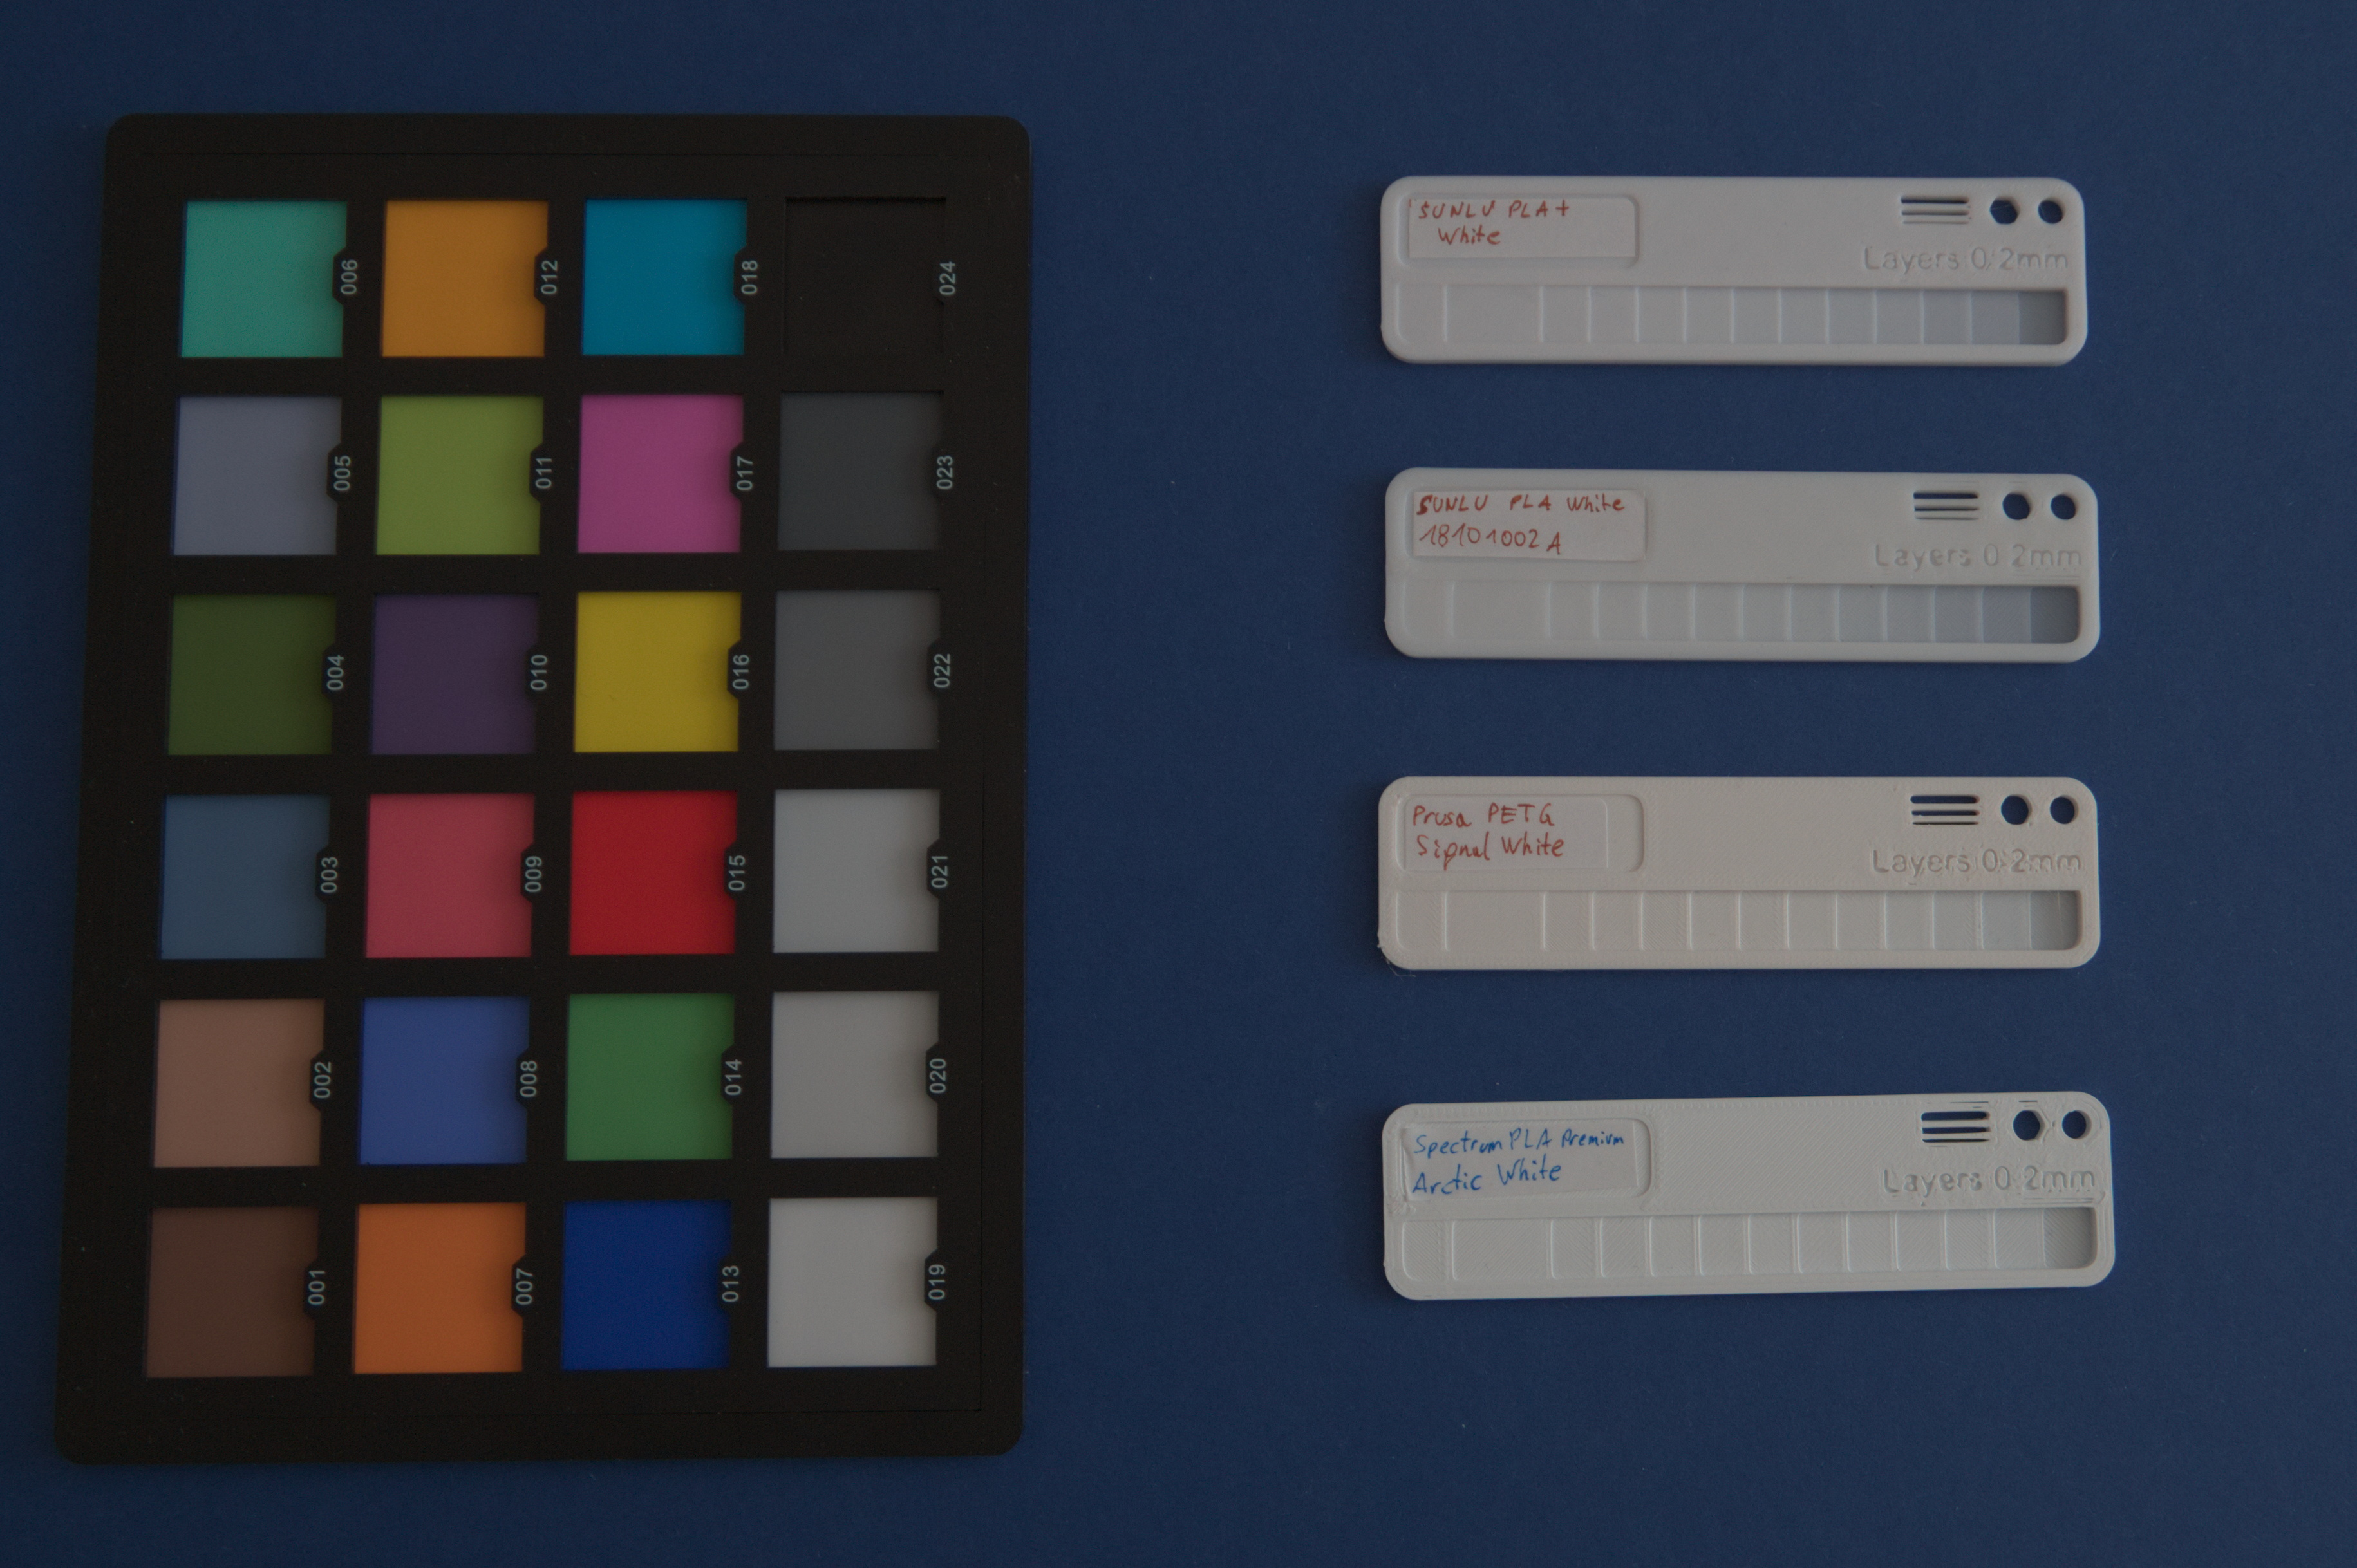 006 012 018 024
005 011 017 023
004 010 016 022
003 009 015 021
002 008 014 020
001 007 013 019
SUNLU PLA+
White
Layers 0.2mm
SUNLU PLA White
18101002A
Layers 0.2mm
Prusa PETG
Signal White
Layers 0.2mm
Spectrum PLA Premium
Arctic White
Layers 0.2mm